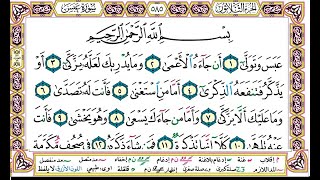 الجزء الثلاثون ٥٨٥ سورة عبس
بِسْمِ اللَّهِ الرَّحْمَٰنِ الرَّحِيمِ
عَبَسَ وَتَوَلَّىٰٓ ١ أَن جَآءَهُ ٱلْأَعْمَىٰ ٢ وَمَا يُدْرِيكَ لَعَلَّهُۥ يَزَّكَّىٰٓ ٣ أَوْ
يَذَّكَّرُ فَتَنفَعَهُ ٱلذِّكْرَىٰٓ ٤ أَمَّا مَنِ ٱسْتَغْنَىٰ ٥ فَأَنتَ لَهُۥ تَصَدَّىٰ ٦
وَمَا عَلَيْكَ أَلَّا يَزَّكَّىٰ ٧ وَأَمَّا مَن جَآءَكَ يَسْعَىٰ ٨ وَهُوَ يَخْشَىٰ ٩ فَأَنتَ
عَنْهُ تَلَهَّىٰ ١٠ كَلَّآ إِنَّهَا تَذْكِرَةٌ ١١ فَمَن شَآءَ ذَكَرَهُۥ ١٢ فِى صُحُفٍ مُّكَرَّمَةٍ